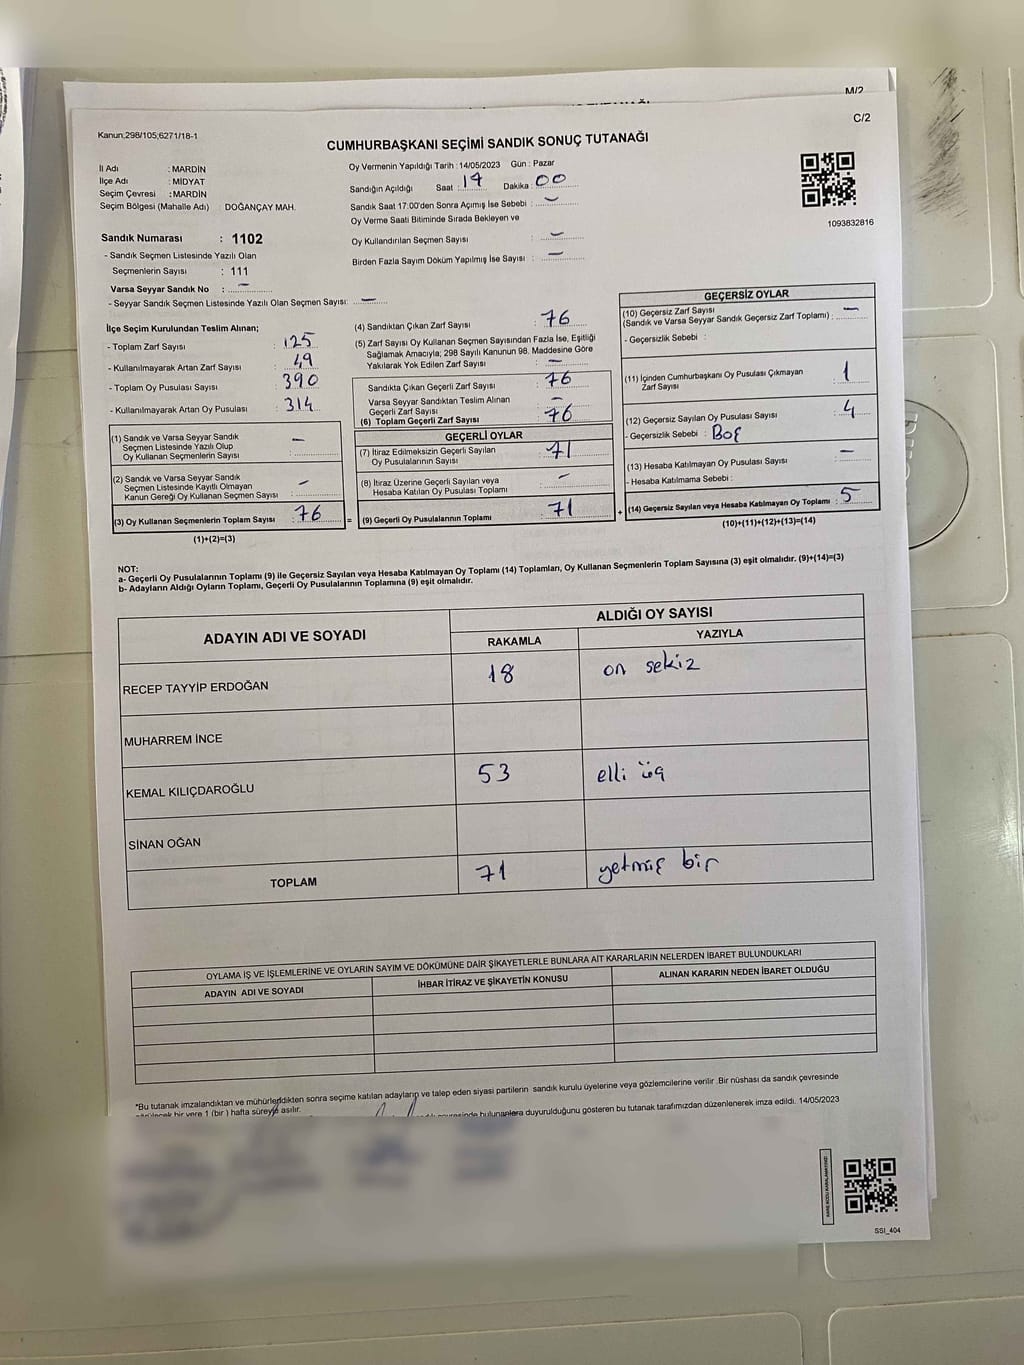 M/2
C/2
Kanun;298/105;6271/18-1
CUMHURBAŞKANI SEÇİMİ SANDIK SONUÇ TUTANAĞI
İl Adı : MARDİN
İlçe Adı : MİDYAT
Seçim Çevresi : MARDİN
Seçim Bölgesi (Mahalle Adı) : DOĞANÇAY MAH.
Sandık Numarası : 1102
- Sandık Seçmen Listesinde Yazılı Olan
Seçmenlerin Sayısı : 111
Varsa Seyyar Sandık No : -
- Seyyar Sandık Seçmen Listesinde Yazılı Olan Seçmen Sayısı: -
Oy Vermenin Yapıldığı Tarih : 14/05/2023 Gün : Pazar
Sandığın Açıldığı Saat : 17 Dakika : 00
Sandık Saat 17:00'den Sonra Açımış İse Sebebi : -
Oy Verme Saati Bitiminde Sırada Bekleyen ve
Oy Kullandırılan Seçmen Sayısı : -
Birden Fazla Sayım Döküm Yapılmış İse Sayısı : -
1093832816
İlçe Seçim Kurulundan Teslim Alınan;
- Toplam Zarf Sayısı : 125
- Kullanılmayarak Artan Zarf Sayısı : 49
- Toplam Oy Pusulası Sayısı : 390
- Kullanılmayarak Artan Oy Pusulası : 314
(1) Sandık ve Varsa Seyyar Sandık
Seçmen Listesinde Yazılı Olup
Oy Kullanan Seçmenlerin Sayısı : -
(2) Sandık ve Varsa Seyyar Sandık
Seçmen Listesinde Kayıtlı Olmayan
Kanun Gereği Oy Kullanan Seçmen Sayısı : -
(3) Oy Kullanan Seçmenlerin Toplam Sayısı : 76
(1)+(2)=(3)
(4) Sandıktan Çıkan Zarf Sayısı : 76
(5) Zarf Sayısı Oy Kullanan Seçmen Sayısından Fazla İse, Eşitliği
Sağlamak Amacıyla; 298 Sayılı Kanunun 98. Maddesine Göre
Yakılarak Yok Edilen Zarf Sayısı : -
Sandıkta Çıkan Geçerli Zarf Sayısı : 76
Varsa Seyyar Sandıktan Teslim Alınan
Geçerli Zarf Sayısı : -
(6) Toplam Geçerli Zarf Sayısı : 76
GEÇERLİ OYLAR
(7) İtiraz Edilmeksizin Geçerli Sayılan
Oy Pusulalarının Sayısı : 71
(8) İtiraz Üzerine Geçerli Sayılan veya
Hesaba Katılan Oy Pusulası Toplamı : -
= (9) Geçerli Oy Pusulalarının Toplamı : 71
GEÇERSİZ OYLAR
(10) Geçersiz Zarf Sayısı
(Sandık ve Varsa Seyyar Sandık Geçersiz Zarf Toplamı) : -
- Geçersizlik Sebebi :
(11) İçinden Cumhurbaşkanı Oy Pusulası Çıkmayan
Zarf Sayısı : 1
(12) Geçersiz Sayılan Oy Pusulası Sayısı : 4
- Geçersizlik Sebebi : Boş
(13) Hesaba Katılmayan Oy Pusulası Sayısı : -
- Hesaba Katılmama Sebebi :
+ (14) Geçersiz Sayılan veya Hesaba Katılmayan Oy Toplamı : 5
(10)+(11)+(12)+(13)=(14)
NOT:
a- Geçerli Oy Pusulalarının Toplamı (9) ile Geçersiz Sayılan veya Hesaba Katılmayan Oy Toplamı (14) Toplamları, Oy Kullanan Seçmenlerin Toplam Sayısına (3) eşit olmalıdır. (9)+(14)=(3)
b- Adayların Aldığı Oyların Toplamı, Geçerli Oy Pusulalarının Toplamına (9) eşit olmalıdır.
ADAYIN ADI VE SOYADI
ALDIĞI OY SAYISI
RAKAMLA YAZIYLA
RECEP TAYYİP ERDOĞAN 18 on sekiz
MUHARREM İNCE
KEMAL KILIÇDAROĞLU 53 elli üç
SİNAN OĞAN
TOPLAM 71 yetmiş bir
OYLAMA İŞ VE İŞLEMLERİNE VE OYLARIN SAYIM VE DÖKÜMÜNE DAİR ŞİKAYETLERLE BUNLARA AİT KARARLARIN NELERDEN İBARET BULUNDUKLARI
ADAYIN ADI VE SOYADI İHBAR İTİRAZ VE ŞİKAYETİN KONUSU ALINAN KARARIN NEDEN İBARET OLDUĞU
*Bu tutanak imzalandıktan ve mühürlendikten sonra seçime katılan adayların ve talep eden siyasi partilerin sandık kurulu üyelerine veya gözlemcilerine verilir .Bir nüshası da sandık çevresinde
görülecek bir yere 1 (bir ) hafta süreyle asılır.
bulunanlara duyurulduğunu gösteren bu tutanak tarafımızdan düzenlenerek imza edildi. 14/05/2023
SSİ_404